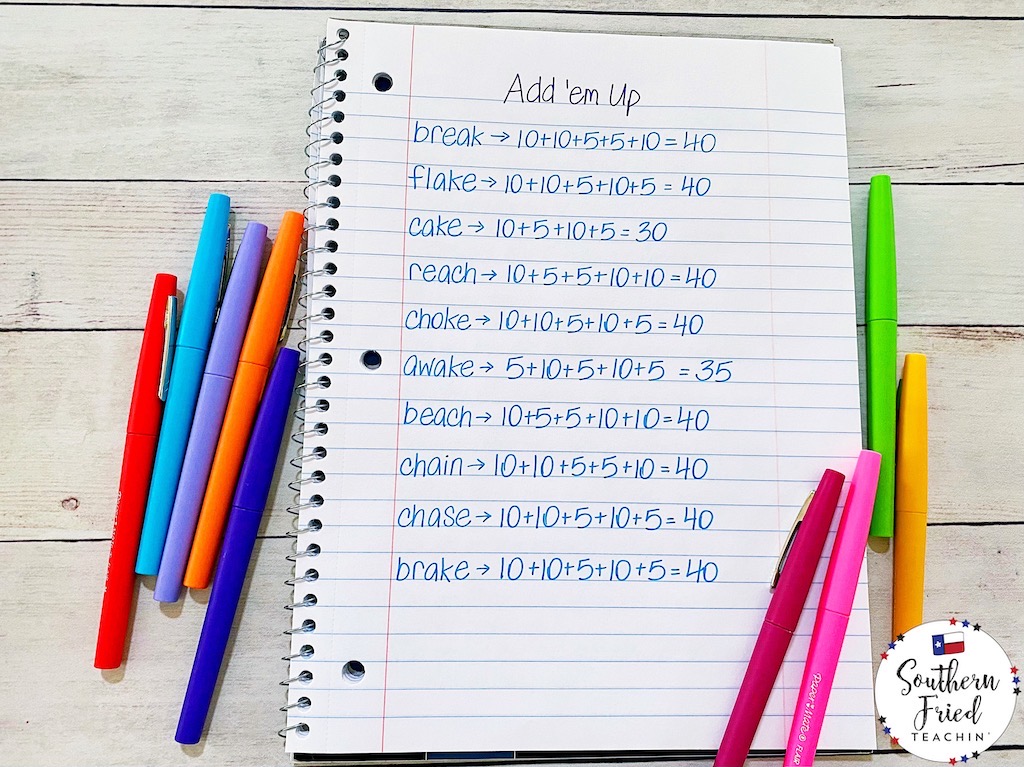 Add 'em Up
break → 10+10+5+5+10 = 40
flake → 10+10+5+10+5 = 40
cake → 10+5+10+5 = 30
reach → 10+5+5+10+10 = 40
choke → 10+10+5+10+5 = 40
awake → 5+10+5+10+5 = 35
beach → 10+5+5+10+10 = 40
chain → 10+10+5+5+10 = 40
chase → 10+10+5+10+5 = 40
brake → 10+10+5+10+5 = 40
Paper Mate® FLAIR
Southern
Fried
TEACHIN'